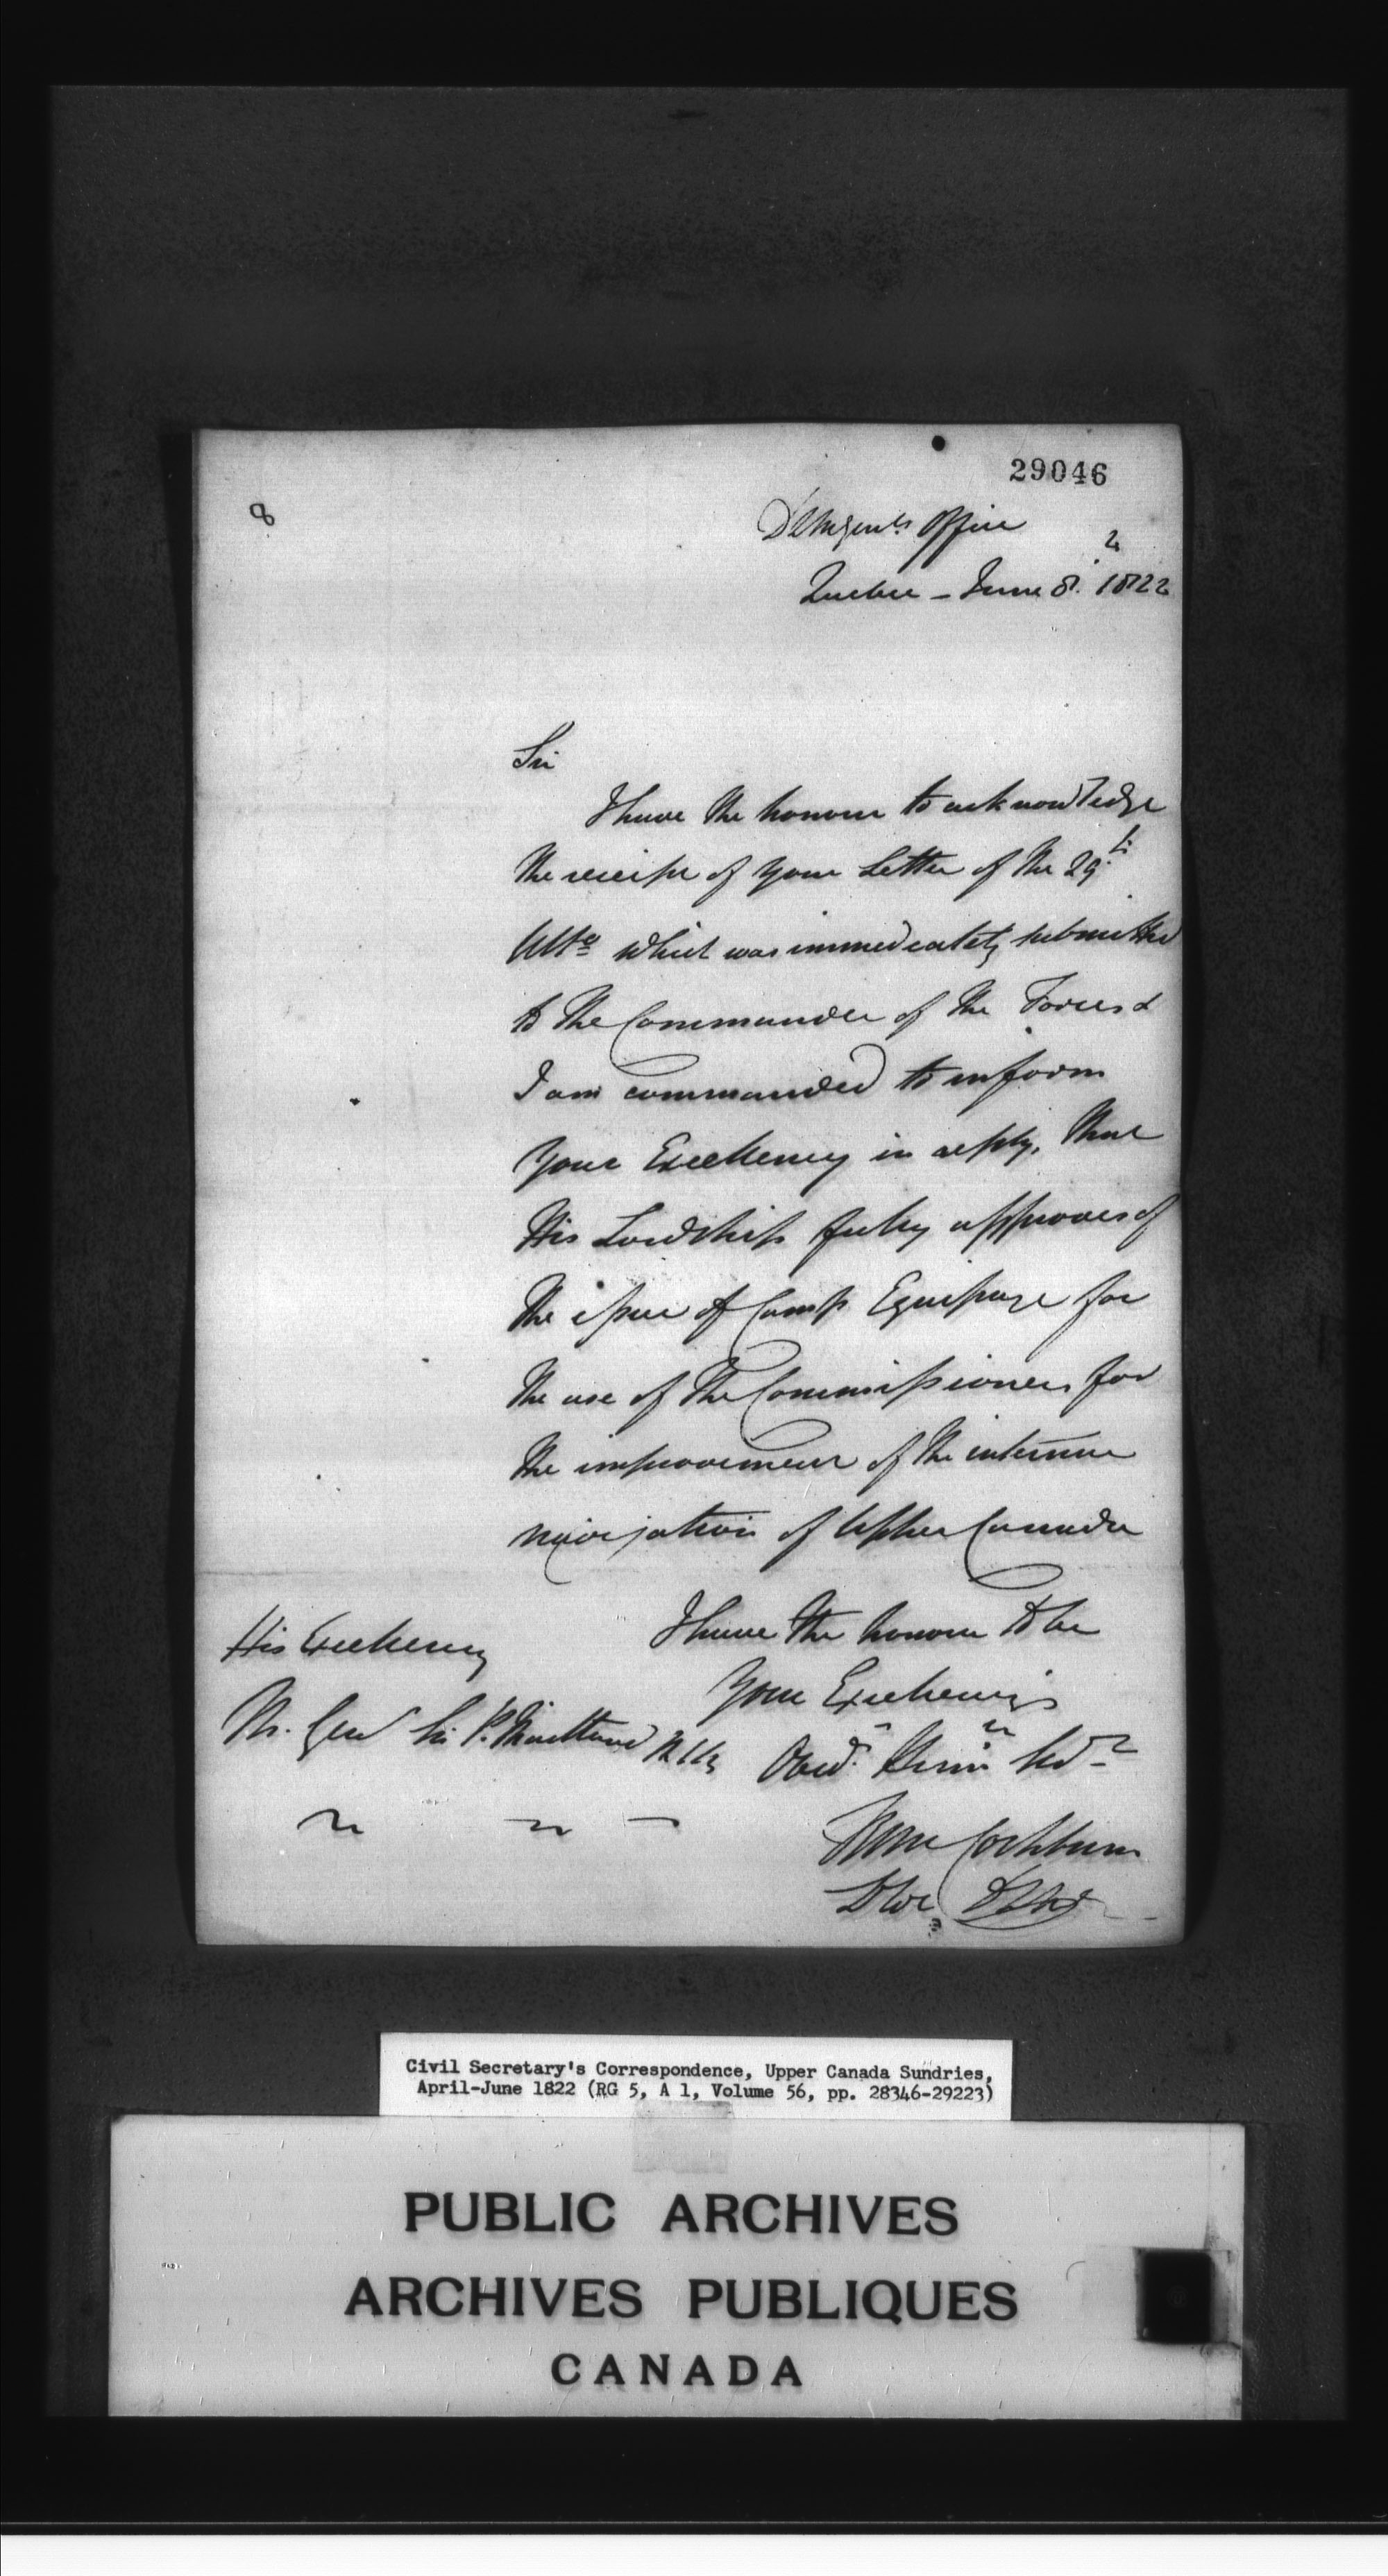 29046
8
Office
2
Quebec - June 8. 1822
Sir
I have the honour to acknowledge
the receipt of your Letter of the 29th
Ulto which was immediately submitted
to the Commander of the Forces &
I am commanded to inform
your Excellency in reply, that
His Lordship fully approves of
the issue of Camp Equipage for
the use of the Commissioners for
the improvement of the internal
navigation of Upper Canada
I have the honour to be
Your Excellency's
Obedt. Servt.
His Excellency
M. Genl Sir P. Maitland KCB
Cockburn
Civil Secretary's Correspondence, Upper Canada Sundries,
April-June 1822 (RG 5, A 1, Volume 56, pp. 28346-29223)
PUBLIC ARCHIVES
ARCHIVES PUBLIQUES
CANADA